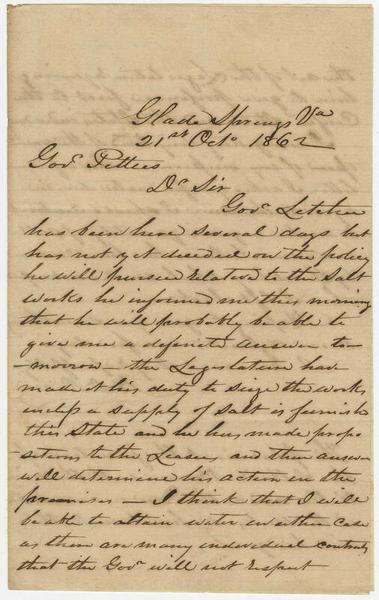 Glade Springs Va
21st Octo 1862
Govr Pettus
Dr Sir
Govr Letcher
has been here several days but
has not yet decided on the policy
he will pursue relative to the Salt
works he informed me this morning
that he will probably be able to
give me a definite answer to-
-morrow - the Legislature have
made it his duty to seize the works
unless a supply of salt is furnish
this State and he has made propo
sitions to the Lessees and their answer
will determine his action in the
premises - I think that I will
be able to attain water in either case
as there are many individual contracts
that the Govr will not respect